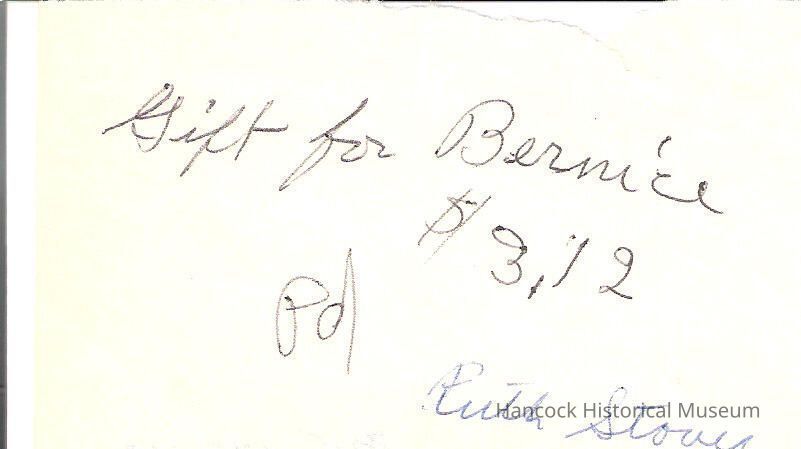 Gift for Bernice
$3.12
Pd
Ruth
Hancock Historical Museum